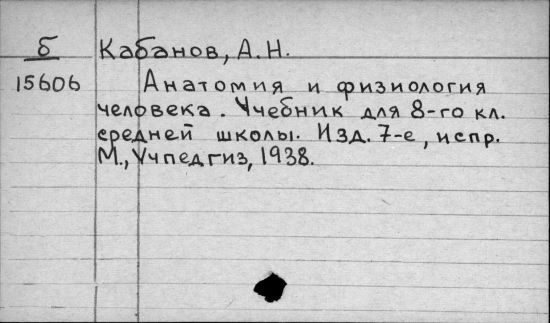 Б Кабанов, А.Н.
15606 Анатомия и физиология
человека. Учебник для 8-го кл.
средней школы. Изд. 7-е, испр.
М., Учпедгиз, 1938.